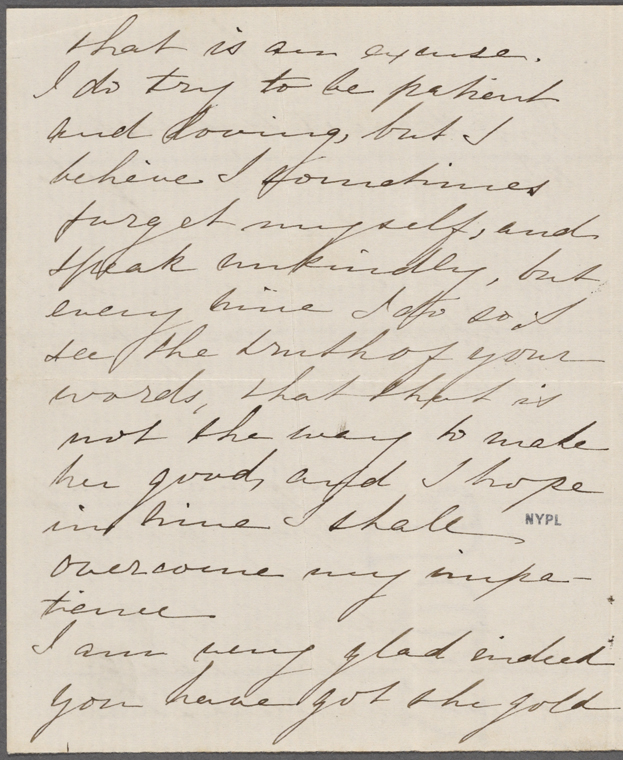 that is an excuse.
I do try to be patient
and loving, but I
believe I sometimes
forget myself, and
speak unkindly, but
every time I do so I
see the truth of your
words, that that is
not the way to make
her good, and I hope
in time I shall
NYPL
overcome my impa-
tience
I am very glad indeed
you have got the gold